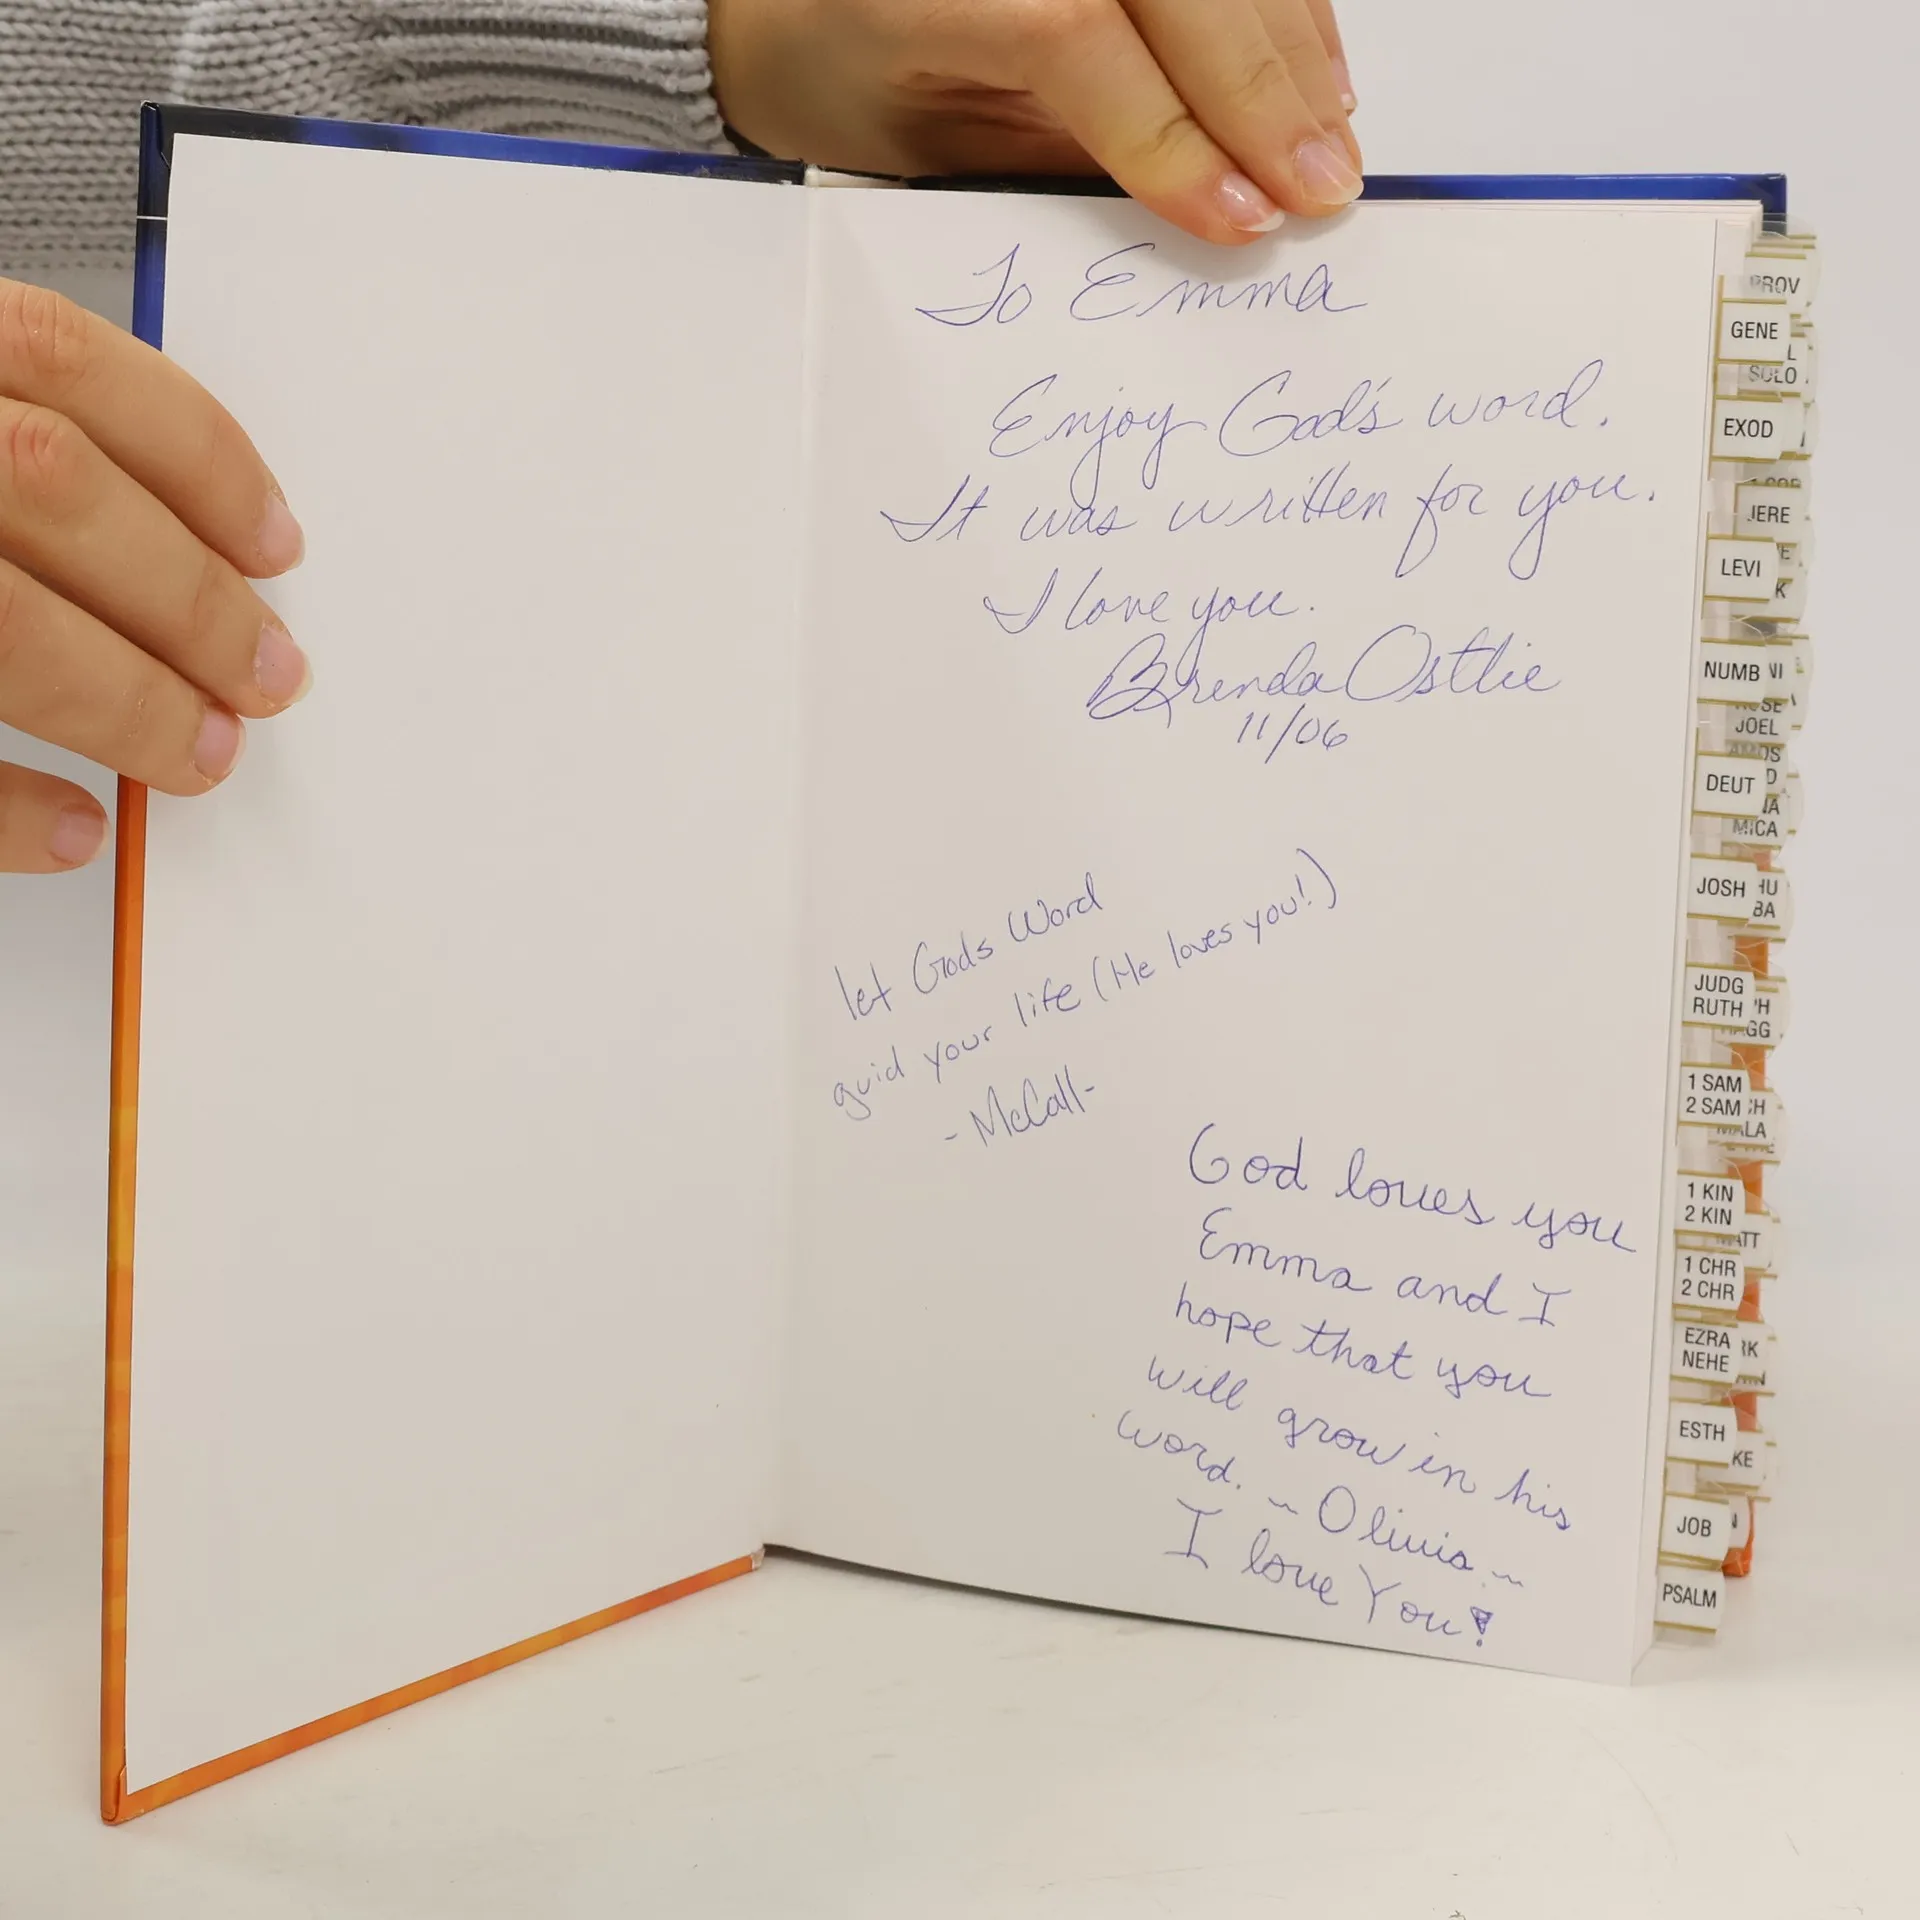 To Emma
Enjoy God's word.
It was written for you.
I love you.
Brenda Ostlie
11/06
let Gods Word
guid your life (He loves you!)
- McCall-
God loves you
Emma and I
hope that you
will grow in his
word. ~ Olivia ~
I love You!
PROV
GENE
SOLO
EXOD
JERE
LEVI
NUMB
JOEL
AMOS
DEUT
MICA
JOSH
JUDG
RUTH
HAGG
1 SAM
2 SAM
MALA
1 KIN
2 KIN
MATT
1 CHR
2 CHR
EZRA
NEHE
ESTH
JOB
PSALM